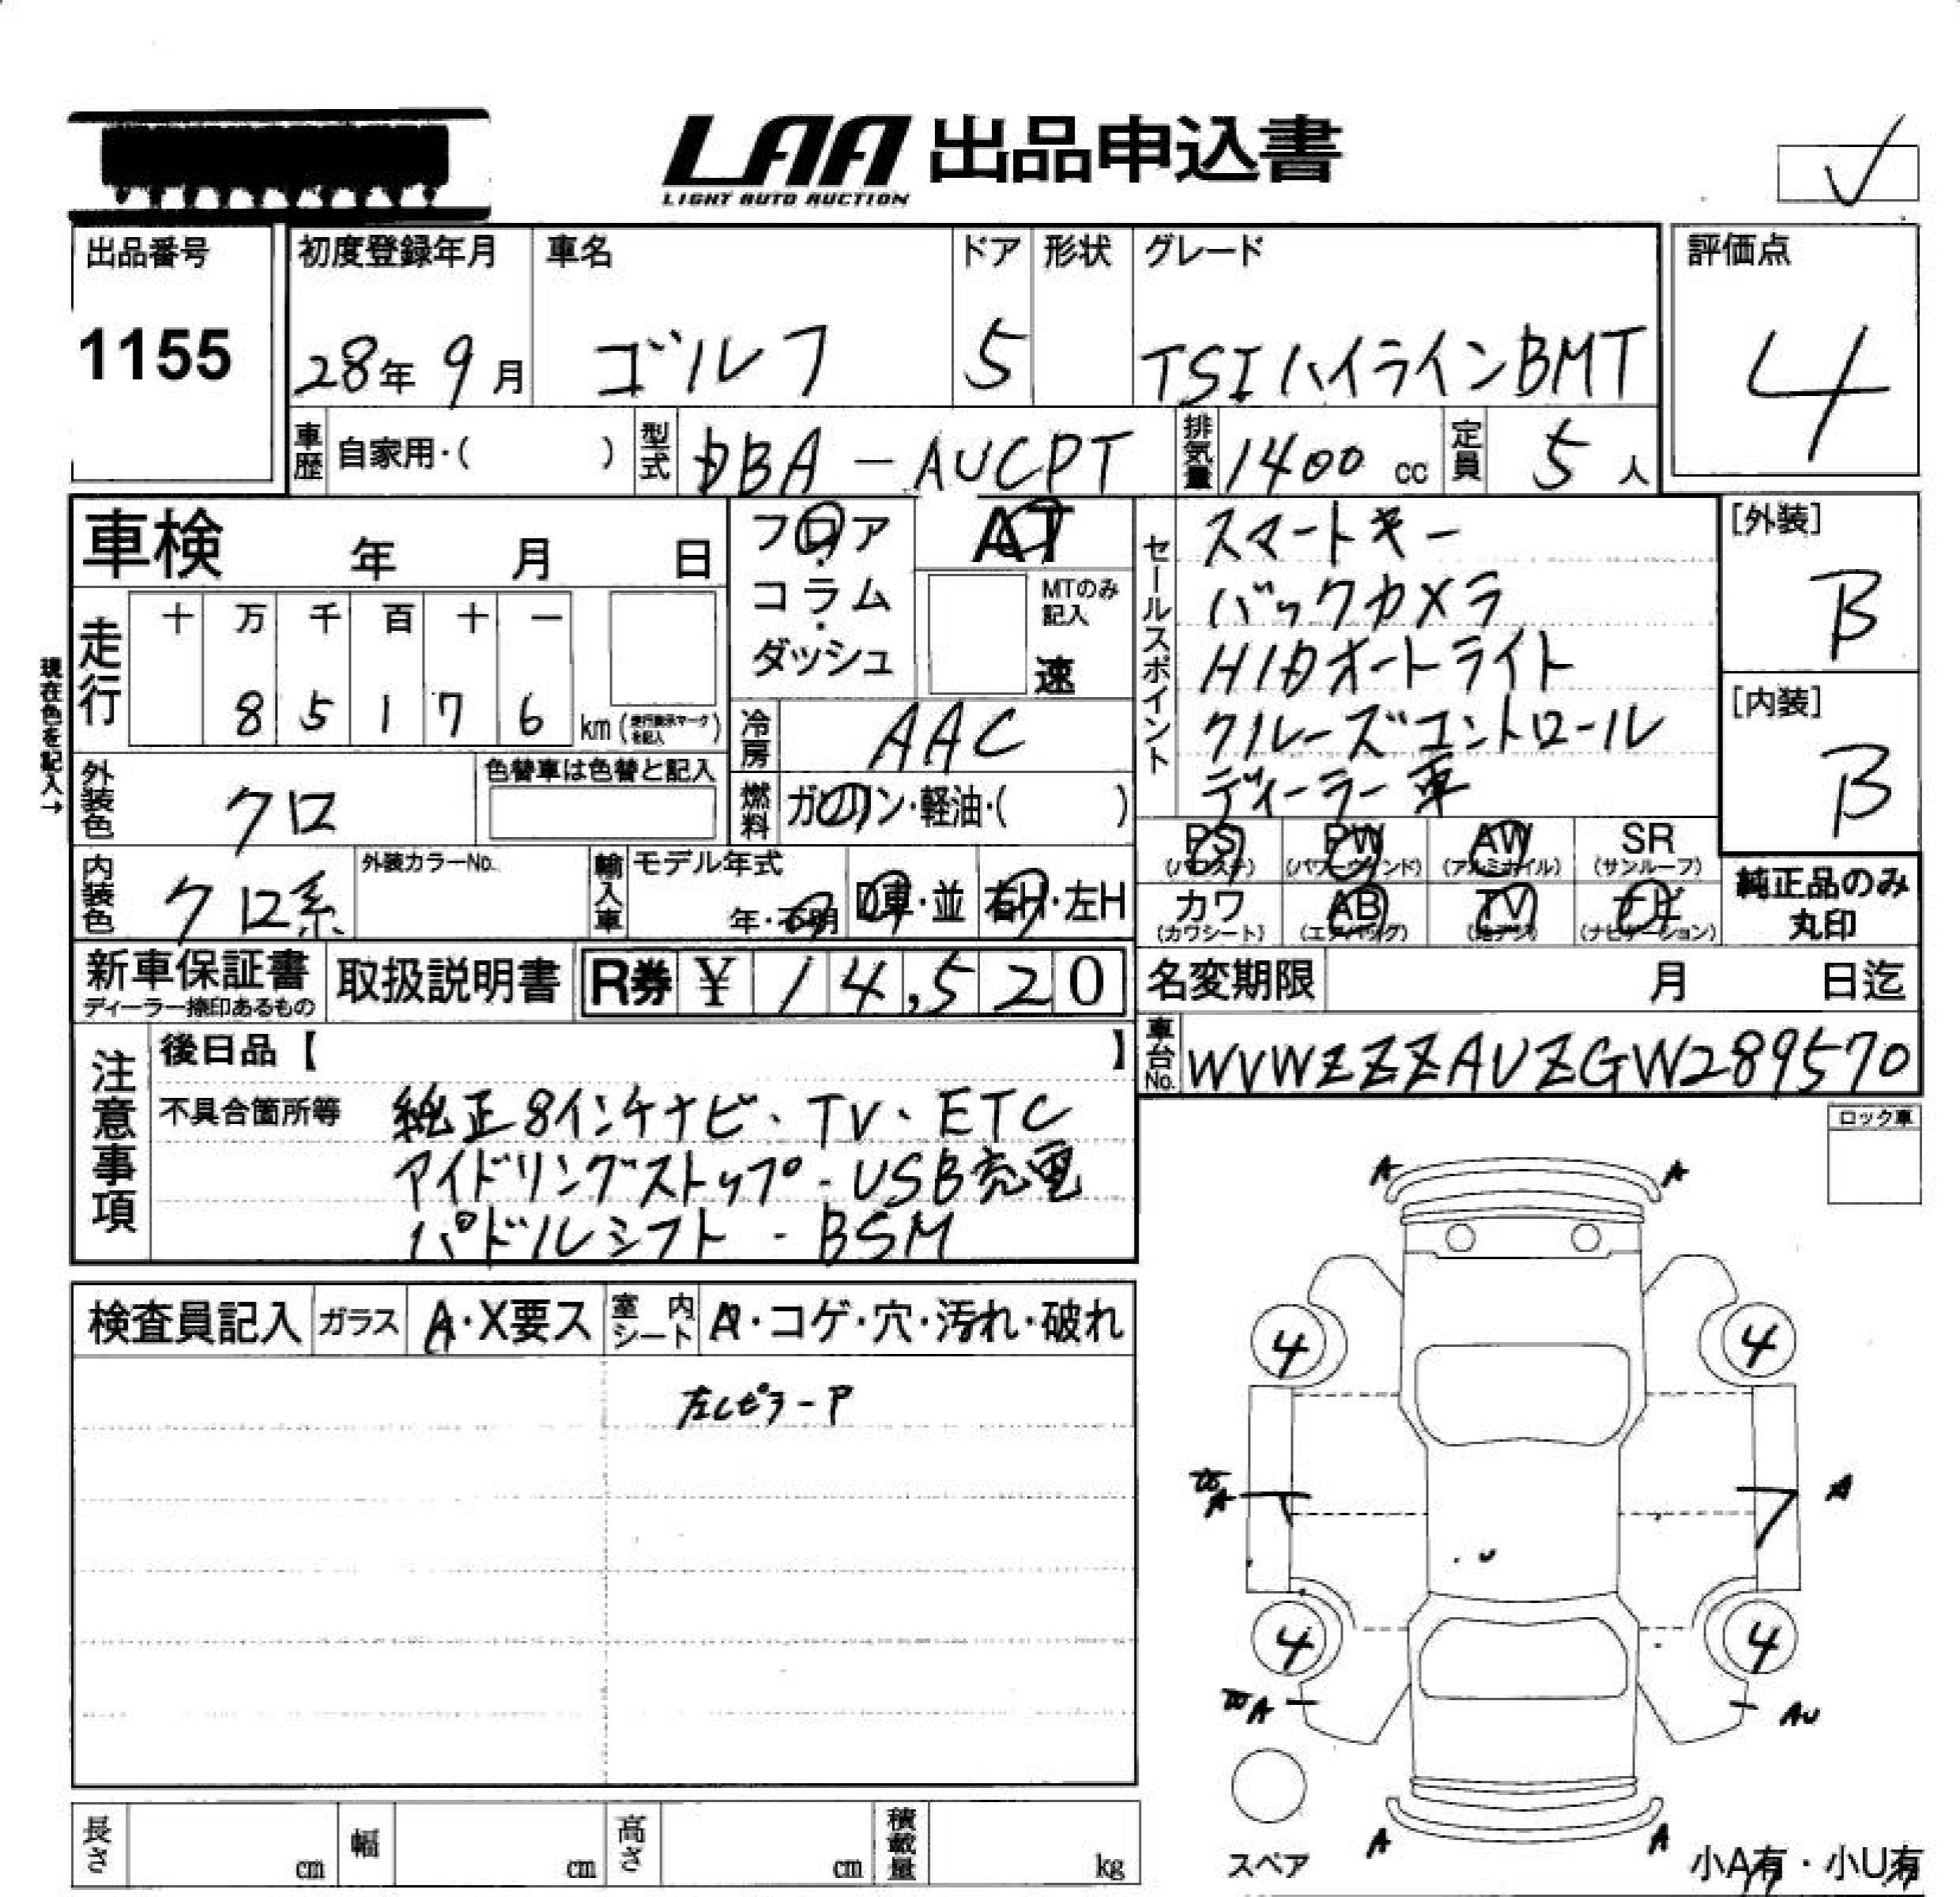 LAA 出品申込書
LIGHT AUTO AUCTION
出品番号
1155
初度登録年月
28年 9月
車名
ゴルフ
ドア
5
形状
グレード
TSIハイラインBMT
評価点
4
車歴 自家用・( )
型式 DBA-AUCPT
排気量 1400 cc
定員 5 人
車検 年 月 日
フロア・コラム・ダッシュ
AT
MTのみ記入
速
走行
十 万 千 百 十 一
8 5 1 7 6 km (走行表示マークを記入)
現在色を記入→
冷房 AAC
外装色 クロ
色替車は色替と記入
燃料 ガソリン・軽油・( )
内装色 クロ系
外装カラーNo.
輸入車 モデル年式
年・不明
D車・並
右H・左H
セールスポイント
スマートキー
バックカメラ
HIDオートライト
クルーズコントロール
ディーラー車
[外装]
B
[内装]
B
PS (パワステ)
PW (パワーウィンド)
AW (アルミホイル)
SR (サンルーフ)
カワ (カワシート)
AB (エアバッグ)
TV (地デジ)
ナビ (ナビゲーション)
純正品のみ
丸印
新車保証書
ディーラー捺印あるもの
取扱説明書
R券 ¥ 14,520
名変期限 月 日迄
車台No. WVWZZZAUZGW289570
注意事項
後日品【 】
不具合箇所等 純正8インチナビ、TV、ETC
アイドリングストップ・USB充電
パドルシフト・BSM
ロック車
検査員記入
ガラス A・X要ス
室内シート A・コゲ・穴・汚れ・破れ
左Cピラ-P
A A
4 4
A A
U
4 4
A AU
A A
スペア
小A有・小U有
長さ cm
幅 cm
高さ cm
積載量 kg